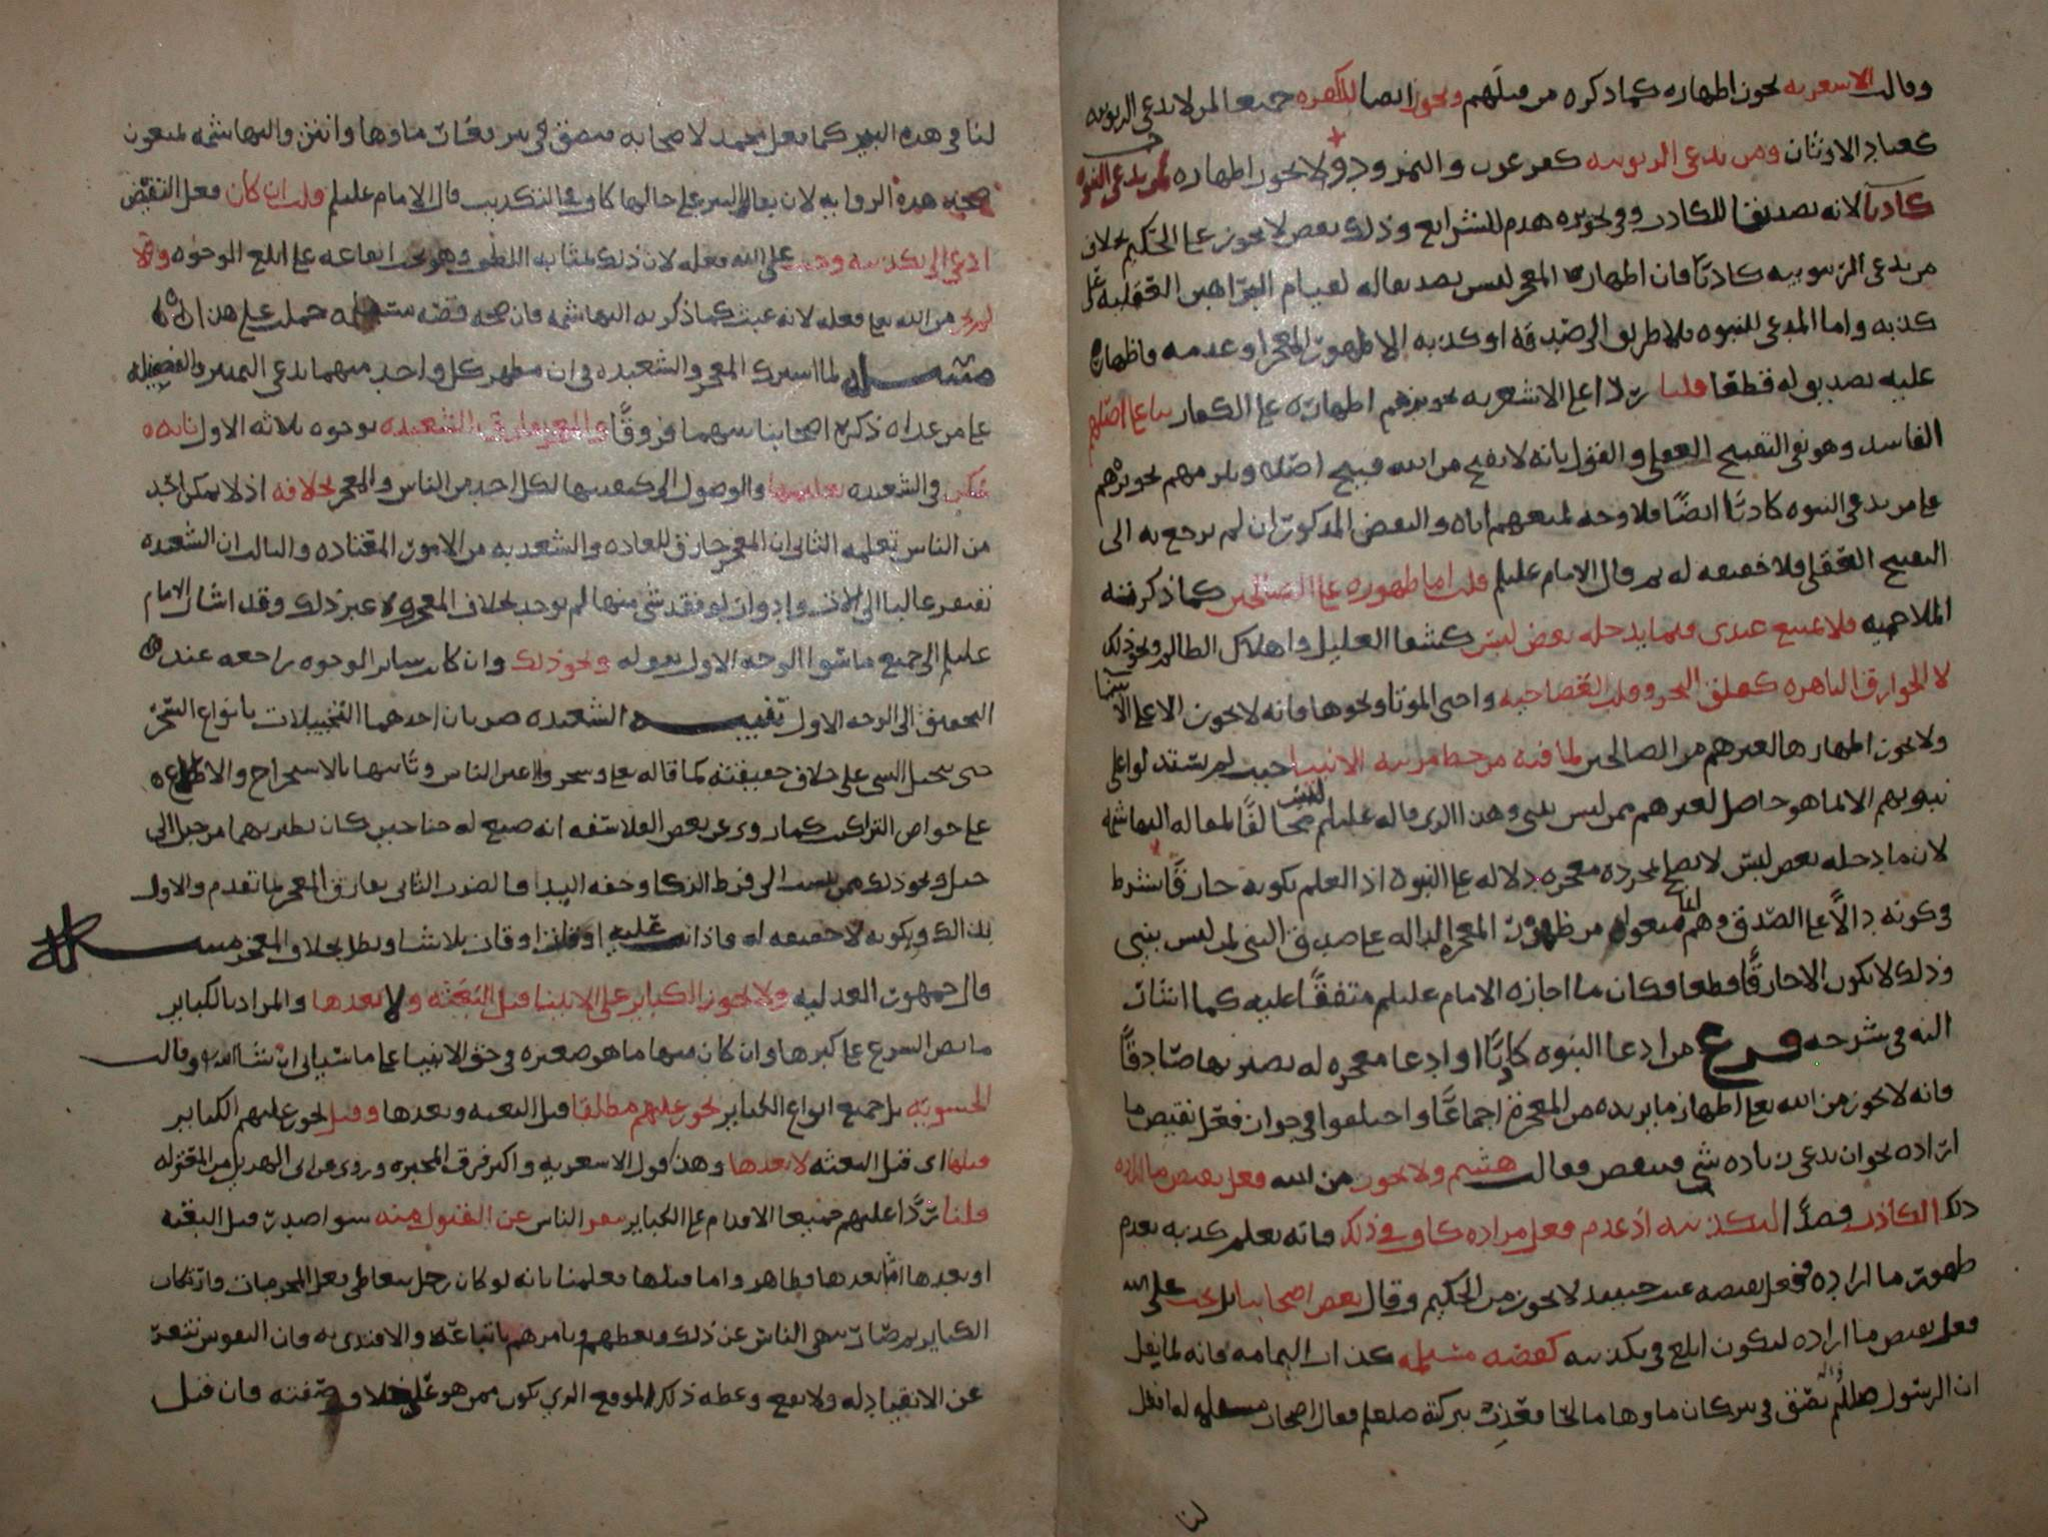 وقالت الاشعريه يجوز اظهاره كما ذكره من قبلهم ويجوز ايضا للكفره جميعا لمن لا يدعي الربوبيه
كعباد الاوثان ومن يدعي الربوبيه كفرعون والنمرود ولا يجوز اظهاره لمن يدعي النبوه
كاذبا لانه تصديق للكاذب وفي تجويزه هدم للشرايع وذلك بعض لا يجوز على الحكيم بخلاف
من يدعي الربوبيه كاذبا فان اظهار المعجز ليس بتصديق له لقيام البراهين العقليه على
كذبه واما المدعي للنبوه فلا طريق الى صدقه او كذبه الا ظهور المعجز او عدمه فاظهاره
عليه تصديق له قطعا قلنا ردا على الاشعريه تجويزهم اظهاره على الكفار بنا على اصلهم
الفاسد وهو نفي التقبيح العقلي والقول بانه لا يقبح من الله قبيح اصلا ويلزمهم تجويزهم
على من يدعي النبوه كاذبا ايضا فلا وجه لمنعهم اياه والنقض المذكور ان لم يرجع به الى
التقبيح العقلي فلا حقيقه له ثم قال الامام عليلم قلت اما ظهوره على الصالحين كما ذكرته
الملاحميه فلا يمتنع عندي فيما يدخله بعض لبس كشفا العليل واهلاك الظالم ونحو ذلك
لا الخوارق الباهره كفلق البحر وقلب العصا حيه واحيى الموتا ونحوها فانه لا يجوز الا على الانبيا
ولا يجوز اظهارها لغيرهم من الصالحين لما فيه من حط مرتبه الانبيا حيث لم يستدلوا على
نبوتهم الا بما هو حاصل لغيرهم ممن ليس بنبي وهذا الذي قاله عليلم ليس مخالفا لمقاله البهاشمه
لان ما يدخله بعض لبس لا يصح بمجرده معجزه دلاله على النبوه اذ العلم بكونه خارقا شرط
في كونه دالا على الصدق وهم منعوا من ظهور المعجزه الداله على صدق النبي لمن ليس بنبي
وذلك لا يكون الا خارقا قطعا فكان ما اجازه الامام عليلم متفقا عليه كما اشار
اليه في شرحه فرع من ادعا النبوه كاذبا او ادعا معجزه له يصير بها صادقا
فانه لا يجوز من الله تعالى اظهار ما يريده من المعجزه اجماعا واختلفوا في جواز فعل نقيض ما
اراده نحو ان يدعي زياده شي فينقص فقالت هشيم ولا يجوز من الله فعل نقيض ما اراده
ذلك الكاذب قصدا لتكذيبه اذ عدم فعل مراده كاف في ذلك فانه يعلم كذبه بعدم
ظهور ما اراده ففعل نقيضه عبث حينئذ لا يجوز من الحكيم وقال بعض اصحابنا بل يجب على الله
فعل نقيض ما اراده ليكون ابلغ في تكذيبه كقصه مسيلمه كذاب اليمامه فانه لما نقل
ان الرسول صللم تفل في بير كان ماوها مالحا فعذب ببركته صلعلم فقال اصحاب مسيلمه له افعل
لنا
لنا في هذه البير كما فعل محمد لاصحابه فبصق في بير فغار ماوها وانتن والبهاشمه يمنعون
صحه هذه الروايه لان بقا البير على حالها كاف في التكذيب قال الامام عليلم قلت ان كان فعل النقيض
ادعى الى تكذيبه وجب على الله فعله لان ذلك بمثابه اللطف وهو يجب ايقاعه على ابلغ الوجوه والا
لم يجز من الله تعالى فعله لانه عبث كما ذكرته البهاشمه فان صحه قصه مسيلمه حملت على هذا
مسئله لما اشترك المعجز والشعبذه في ان مظهر كل واحد منهما يدعي التميز والفضيله
على من عداه ذكر اصحابنا بينهما فروقا والمعجز يفارق الشعبذه بوجوه ثلاثه الاول بانه
يمكن في الشعبذه تعليمها والوصول الى كيفيتها لكل احد من الناس والمعجز بخلافه اذ لا يمكن احد
من الناس تعلمه الثاني ان المعجز خارق للعاده والشعبذه من الامور المعتاده والثالث ان الشعبذه
تفتقر غالبا الى آلات وادوات لو فقد شي منها لم توجد بخلاف المعجزه لا غير ذلك وقد اشار الامام
عليلم الى جميع ما سوا الوجه الاول بقوله ونحو ذلك وان كان ساير الوجوه راجعه عند
التحقيق الى الوجه الاول تنبيه الشعبذه ضربان احدهما التخييلات بانواع السحر
حتى يتخيل الشي على خلاف حقيقته كما قاله تعالى وسحروا اعين الناس وثانيها بالاستخراج والاطلاع
على خواص التراكيب كما روي عن بعض الفلاسفه انه صنع له جناحين كان يطير بهما من جبل الى
جبل ونحو ذلك ممن ينسب الى فرط الذكا وخفه اليد فالضرب الثاني يفارق المعجز بما تقدم والاول
بذلك وبكونه لا حقيقه له فاذا عليه اوقات تلاشا وبطل بخلاف المعجز مسئله
قال جمهور العدليه ولا يجوز الكباير على الانبيا قبل البعثه ولا بعدها والمراد بالكباير
ما نص الشرع على كبرها وان كان منها ما هو صغيره في حق الانبيا على ما سياتي ان شا الله وقالت
الحشويه بل جميع انواع الكباير تجوز عليهم مطلقا قبل البعثه وبعدها وقيل تجوز عليهم الكباير
قبلها اي قبل البعثه لا بعدها وهذا قول الاشعريه واكثر فرق المجبره وروي عن ابي الهذيل من المعتزله
قلنا ردا عليهم جميعا الاقدام على الكباير ينفر الناس عن القبول منه سوا صدر قبل البعثه
او بعدها اما بعدها فظاهر واما قبلها فعلمنا بانه لو كان رجل يتعاطى فعل المحرمات وارتكاب
الكباير ثم صار ينهى الناس عن ذلك ويعظهم ويامرهم باتباعه والاقتدى به فان النفوس تنفر
عن الانقياد له ولا يقع وعظه ذلك الموقع الذي يكون ممن هو على خلاف صفته فان قيل